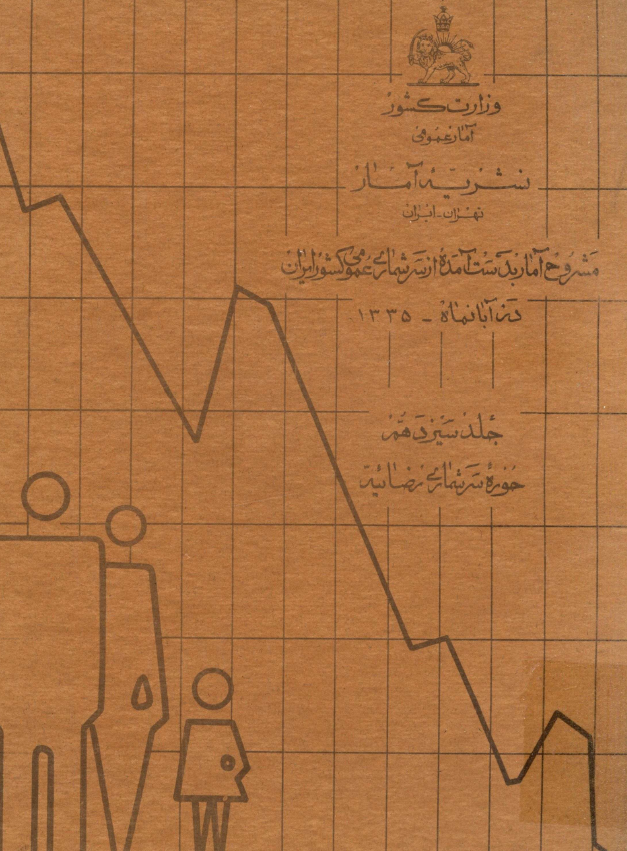 وزارت کشور
آمار عمومی
نشریه آمار
تهران - ایران
مشروح آمار بدست آمده از سرشماری عمومی کشور ایران
در آبانماه - ۱۳۳۵
جلد سیزدهم
حوزه سرشماری رضائیه